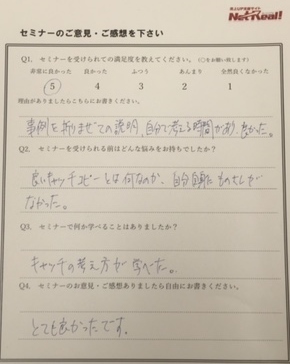 売上UP実現サイト
NetReal!
セミナーのご意見・ご感想を下さい
Q1. セミナーを受けられての満足度を教えてください。(○をお願い致します)
非常に良かった 良かった ふつう あんまり 全然良くなかった
5 4 3 2 1
理由がありましたらこちらにお書きください。
事例を折りまぜての説明、自分で考える時間があり、良かった。
Q2. セミナーを受けられる前はどんな悩みをお持ちでしたか?
良いキャッチコピーとは何なのか、自分自身にものさしが
なかった。
Q3. セミナーで何か学べることはありましたか?
キャッチの考え方が学べた。
Q4. セミナーのお意見・ご感想ありましたら自由にお書きください。
とても良かったです。